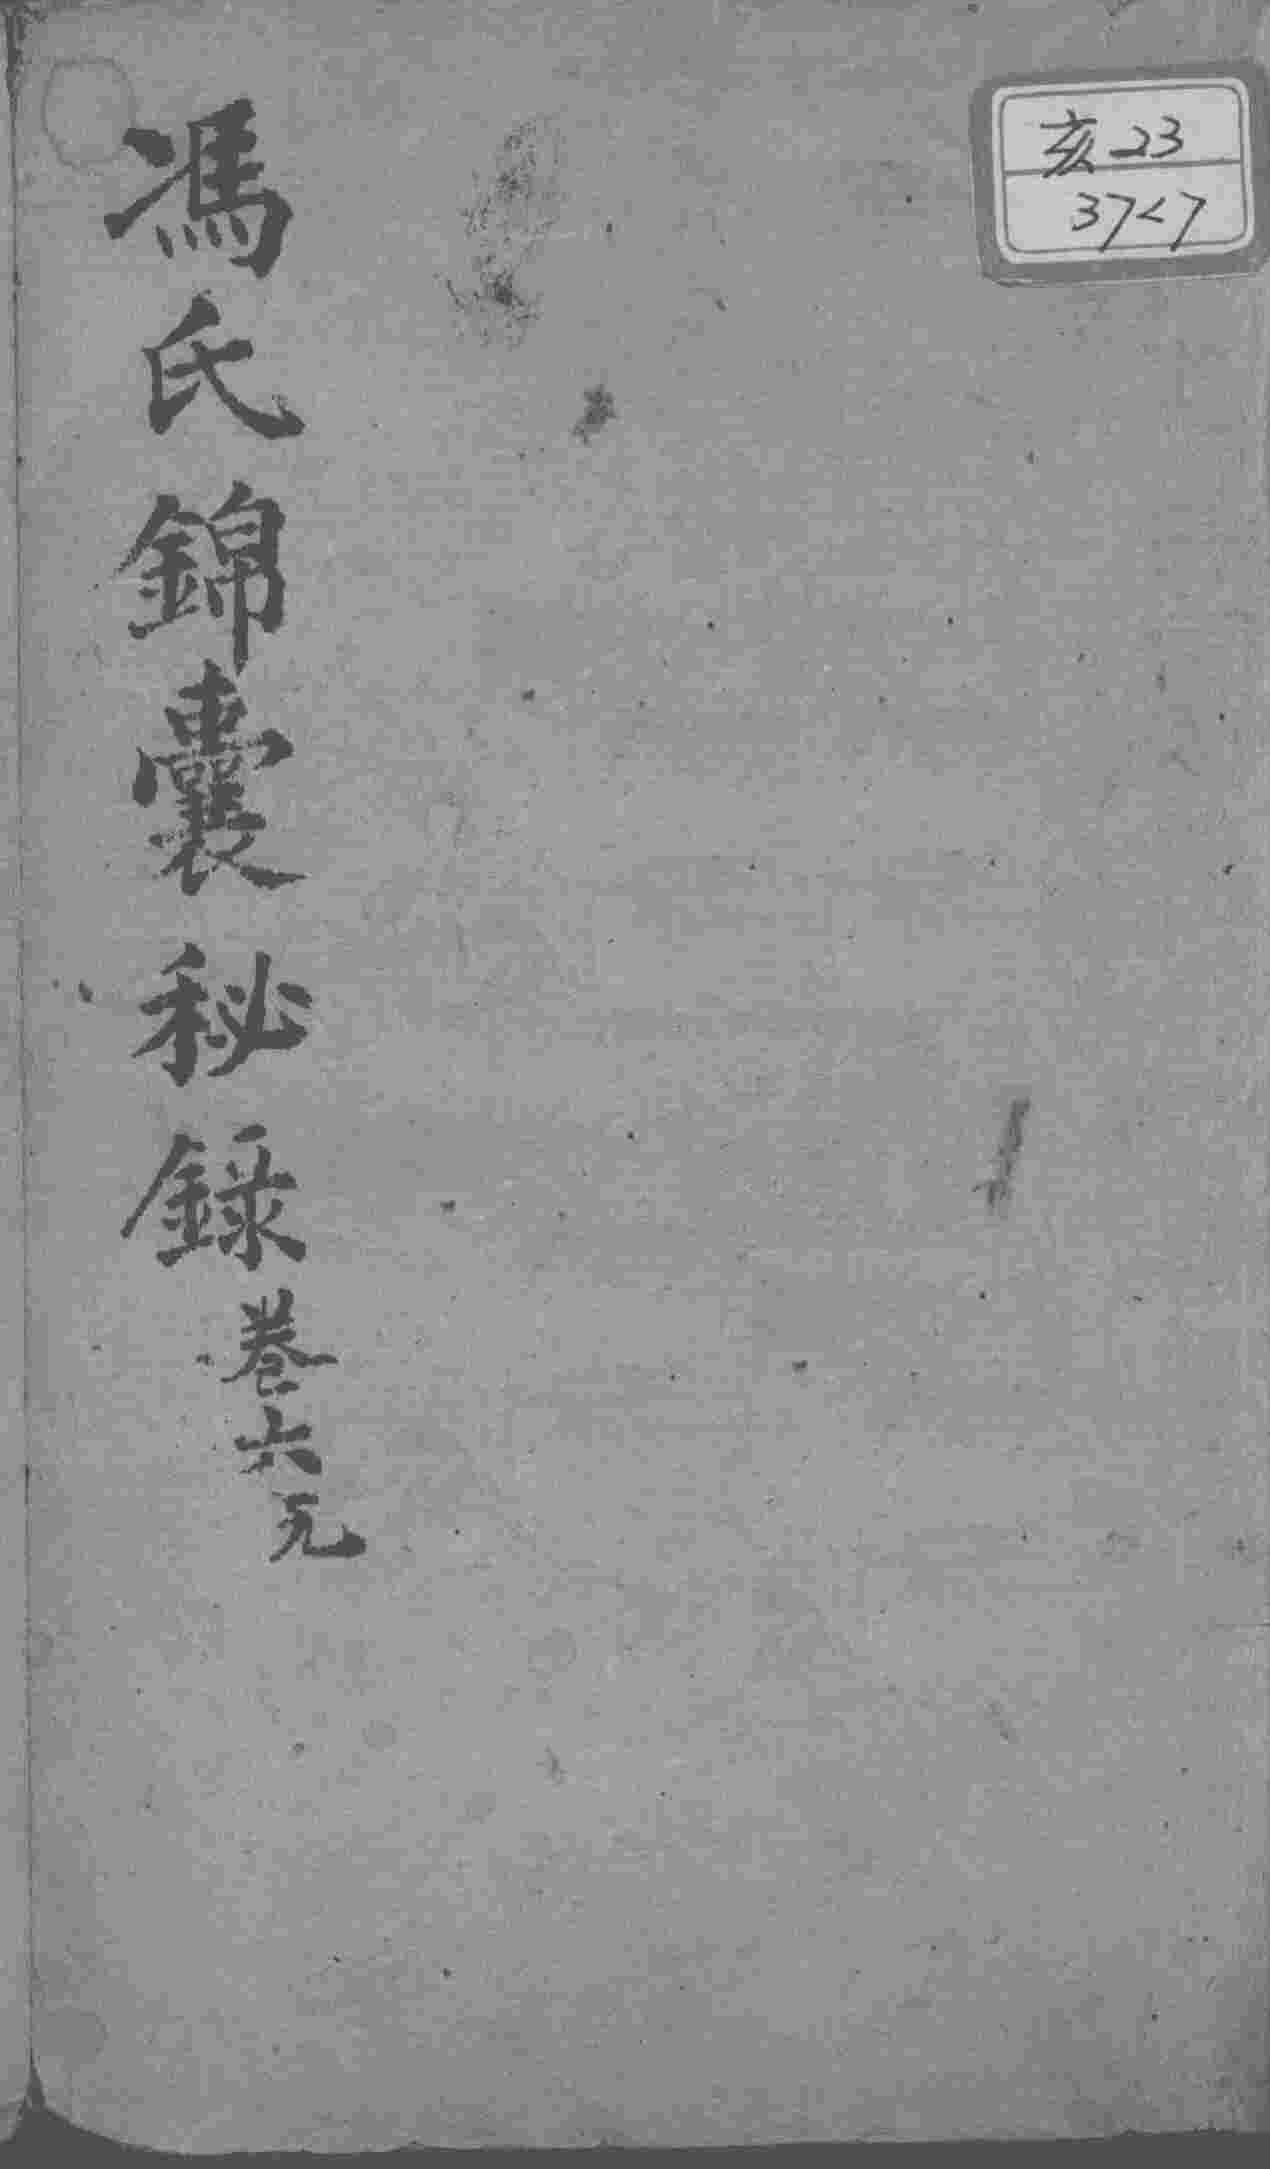 亥23
37<7
馮氏錦囊秘錄卷六元